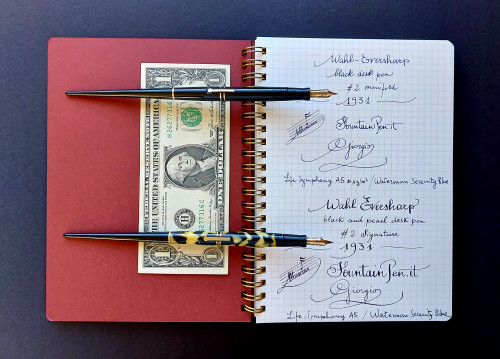 Wahl-Eversharp
black desk pen
#2 manifold
1931
FountainPen.it
Giorgio
Life Symphony A5 / Waterman Serenity Blue
Wahl Eversharp
black and pearl desk pen
#2 Signature
1931
FountainPen.it
Giorgio
Life Symphony A5 / Waterman Serenity Blue
THE UNITED STATES OF AMERICA
ONE DOLLAR
H
1
1
1